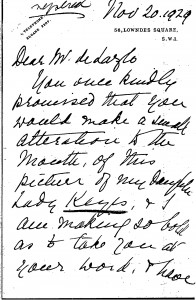 replied
Nov 20. 1929
TELEPHONE
SLOANE
58, LOWNDES SQUARE,
S.W.1.
Dear Mr de Laszlo
You once kindly
promised that you
would make a small
alteration to the
Mouth, of this
picture of my daughter
Lady Keyes, &
am making so bold
as to take you at
your word, & have